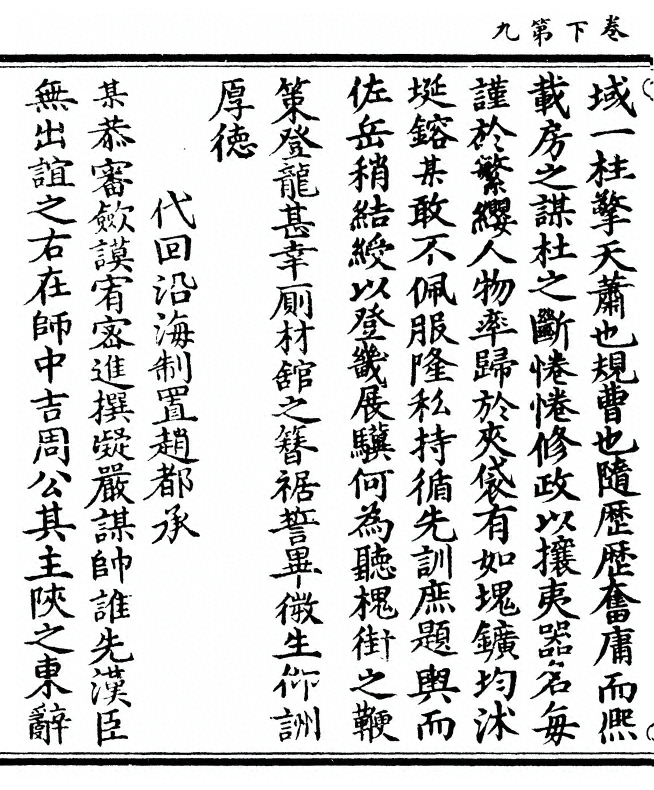 卷下第九
域一柱擎天蕭也規曹也隨歴歴奮庸而熙
載房之謀杜之斷惓惓修政以攘夷器名毎
謹於繁纓人物率歸於夾袋有如塊鑛均沭
埏鎔某敢不佩服隆私持循先訓庶題輿而
佐岳稍結綬以登畿展驥何為聽槐街之鞭
策登龍甚幸厠材舘之簪裾誓畢微生仰詶
厚徳
代回沿海制置趙都承
某恭審歛謨宥密進撰凝嚴謀帥誰先漢臣
無出誼之右在師中吉周公其主陝之東辭